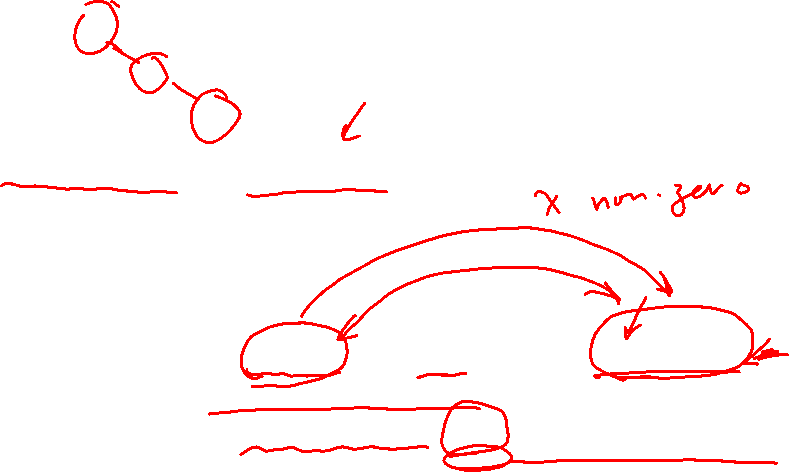 x non-zero